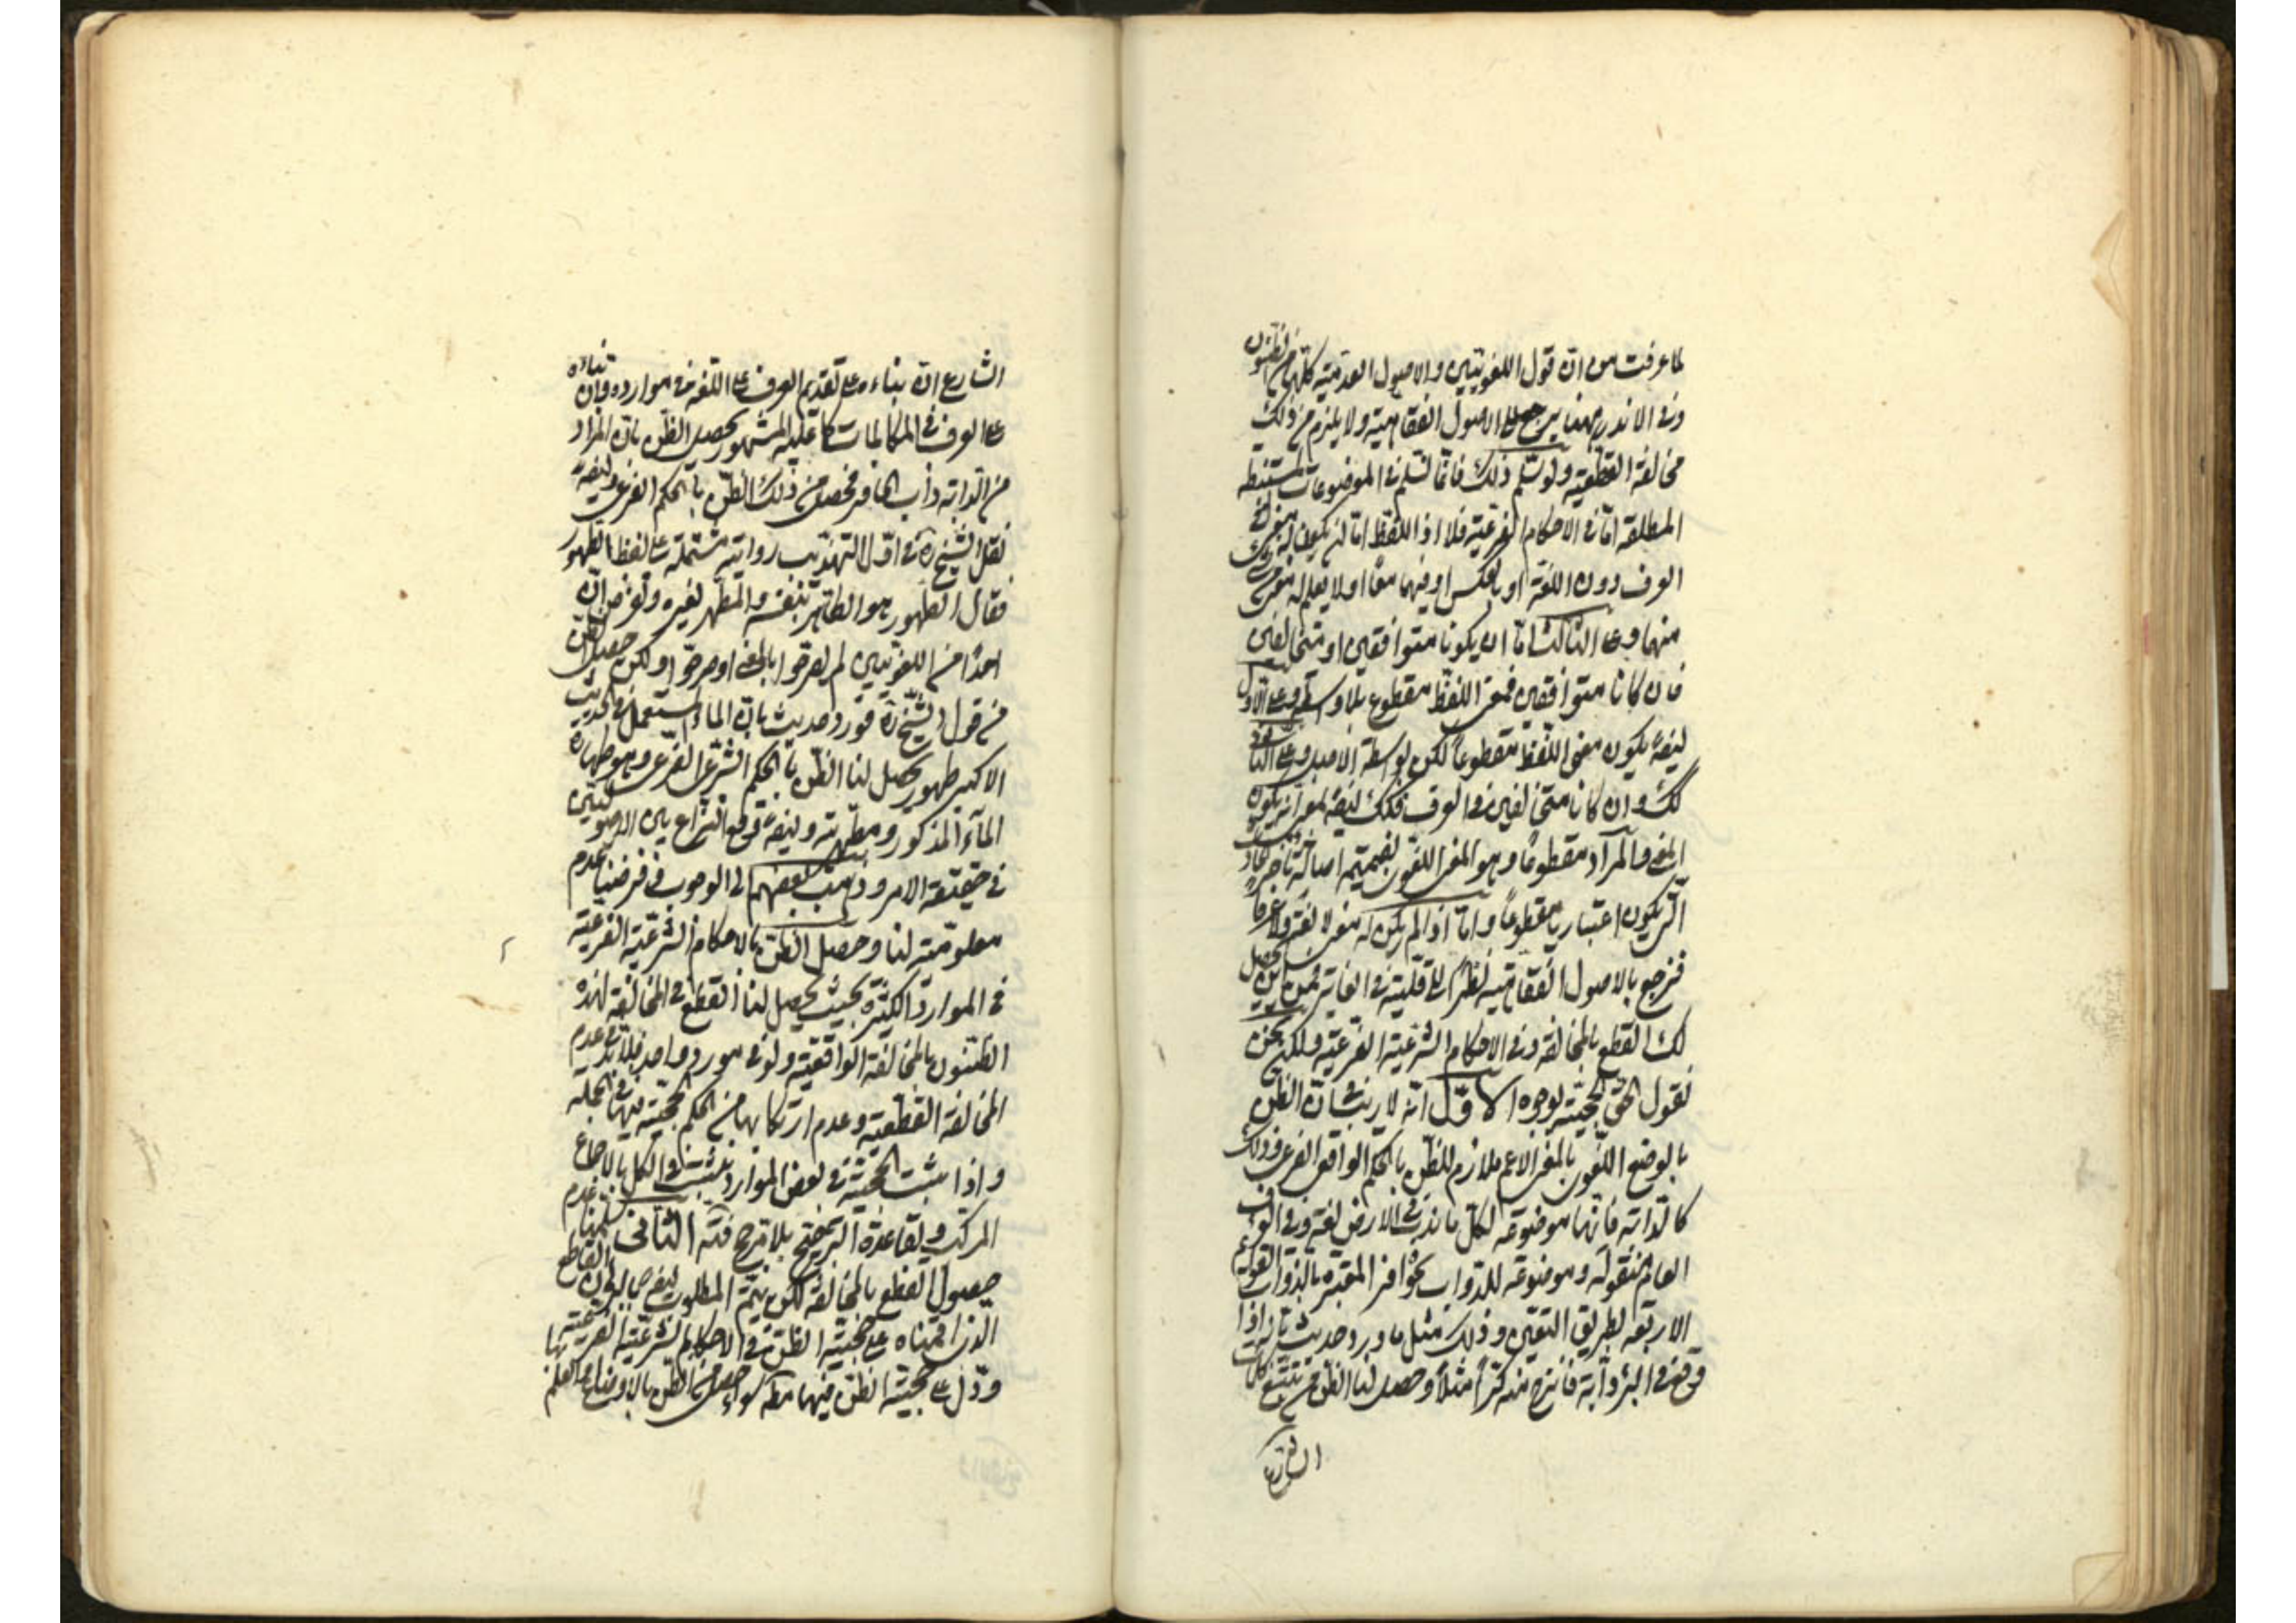 لما عرفت من ان قول اللغويين والاصول العدمية كلها من الظنون
وفى الاندر منها يرجع الى الاصول الفقاهية ولا يلزم من ذلك
مخالفة القطعية ولو سلم ذلك فانما نسلم فى الموضوعات المستنبطة
المطلقة اما فى الاحكام الفرعية فلا اذ اللفظ اما ان يكون له معنى فى
العرف دون اللغة او بالعكس او فيهما معا او لا يعلم له معنى فى
منهما وعلى الثالث اما ان يكونا متوافقين او متخالفين
فان كانا متوافقين فمعنى اللفظ مقطوع بلا واسطة وعلى الاول
ايضا يكون معنى اللفظ مقطوعا لكن بواسطة الاصل وعلى الثانى
كك وان كانا متخالفين فى العرف فكك ايضا لمعنى ان يكون
المعنى المراد مقطوعا وهو المعنى اللغوى بضميمة اصالة تاخر الحادث
التى يكون اعتبارها مقطوعا واما اذا لم يكن له معنى لا لغة ولا عرفا
فنرجع بالاصول الفقاهية نظرا الى قلية فى الغاية فمن اين يحصل
لك القطع بالمخالفة فى الاحكام الشرعية الفرعية ولكن نحن
نقول الحق الحجية لوجوه الاول انه لا ريب فى ان الظن
بالوضع اللغوى بالمعنى الاعم ملازم للظن بالحكم الواقعى الفرعى وذلك
كالدابة فانها موضوعة لكل ما يدب فى الارض لغة وفى العرف
العام منقولة وموضوعة للدواب بحوافر المعتبرة بالذوات القوائم
الاربعة بطريق التعين وذلك مثل ما ورد حديث بانه اذا
وقع فى البئر دابة فانزح منه كرا مثلا وحصل لنا الظن من تتبع كلمات
الشارع
الشارع ان بناءه على تقديم العرف على اللغة فى موارده وان بناءه
على العرف فى المكالمات كما عليه المشهور يحصل الظن بان المراد
من الدابة ذات الحافر فحصل من ذلك الظن بالحكم الفرعى وايضا
نقل الشيخ ره فى اول التهذيب رواية مشتملة على لفظ الطهور
فقال الطهور هو الطاهر بنفسه والمطهر لغيره ولو فرض ان
احدا من اللغويين لم يصرحوا بالمعنى او صرحوا ولكن حصل الظن
من قول الشيخ ره فورد حديث بان الماء المستعمل فى الحدث
الاكبر طهور يحصل لنا الظن بالحكم الشرعى الفرعى وهو طهارة
الماء المذكور ومطهريته وايضا وقع النزاع بين الاصوليين
فى حقيقة الامر وذهب بعضهم الى الوجوب ففرضنا عدم
معلوميته لنا وحصل الظن بالاحكام الشرعية الفرعية
فى الموارد الكثيرة بحيث يحصل لنا القطع فى المخالفة لهذه
الظنون بالمخالفة الواقعية ولو فى مورد واحد فلا بد فى عدم
المخالفة القطعية وعدم ارتكابها من الحكم بحجيته فيها فى الجملة
واذا ثبت الحجية فى بعض الموارد نثبت فى الكل بالاجماع
المركب ولقاعدة الترجيح بلا مرجح فتم الثانى سلمنا عدم
حصول القطع بالمخالفة لكن يتم المطلوب بفرض البرهان القاطع
الذى اقمناه على حجية الظن فى الاحكام الشرعية الفرعية
ودل على حجية الظن فيها مطلقا سواء حصل من الظن بالاوضاع او العلم بها